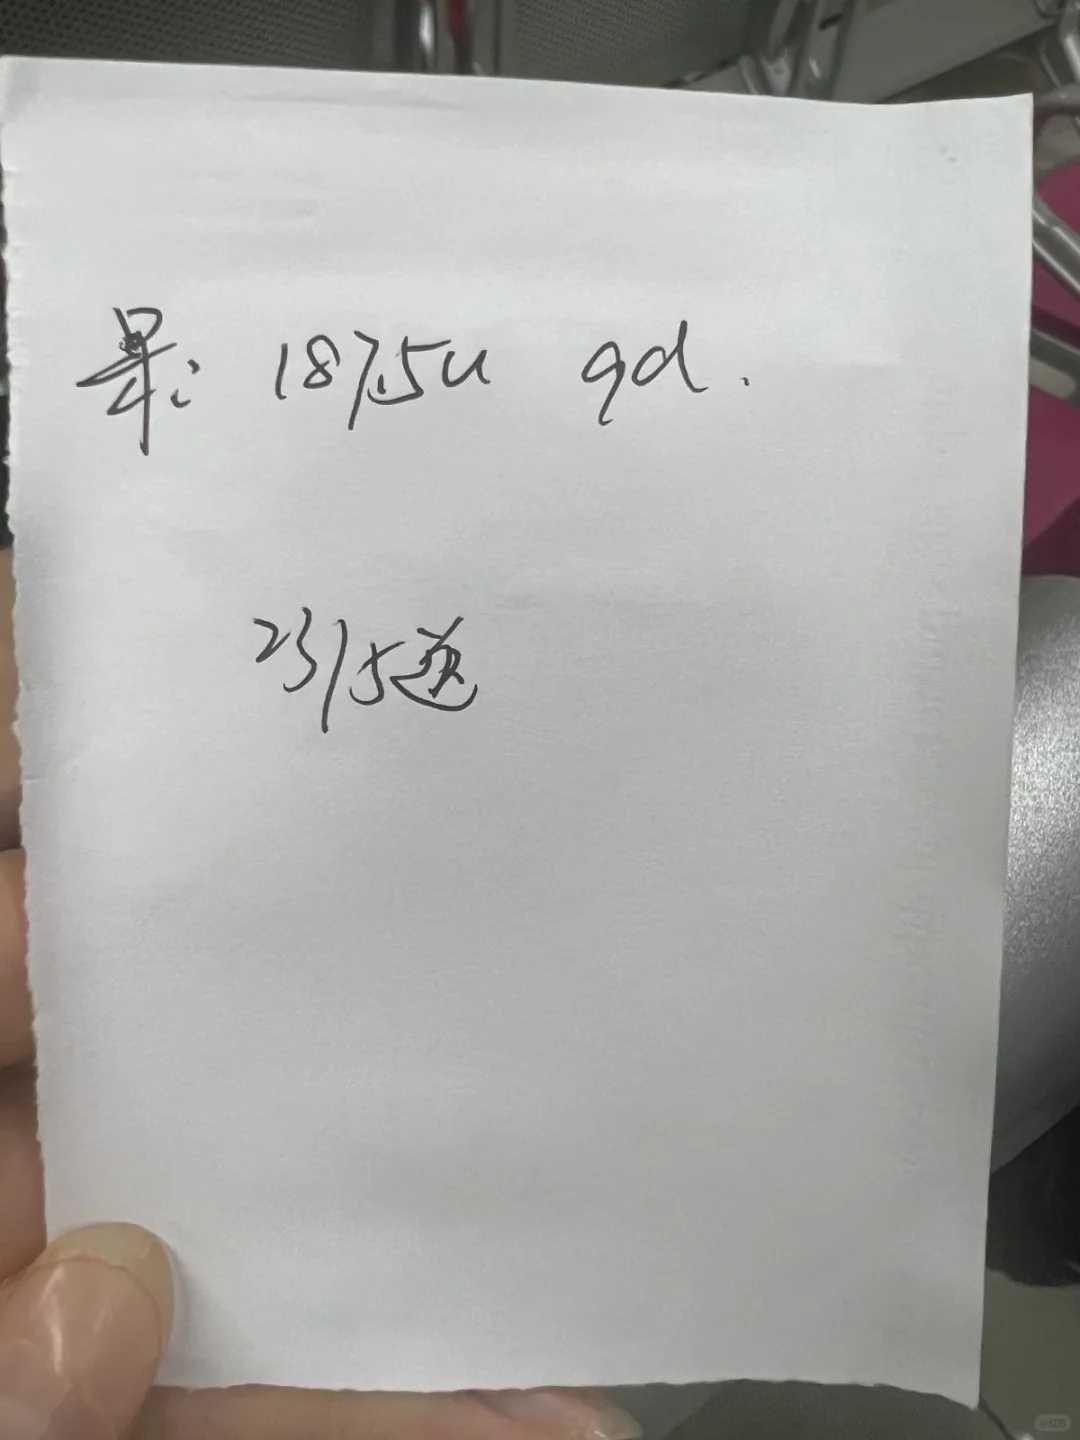 果: 187.5u qd.
23/5返